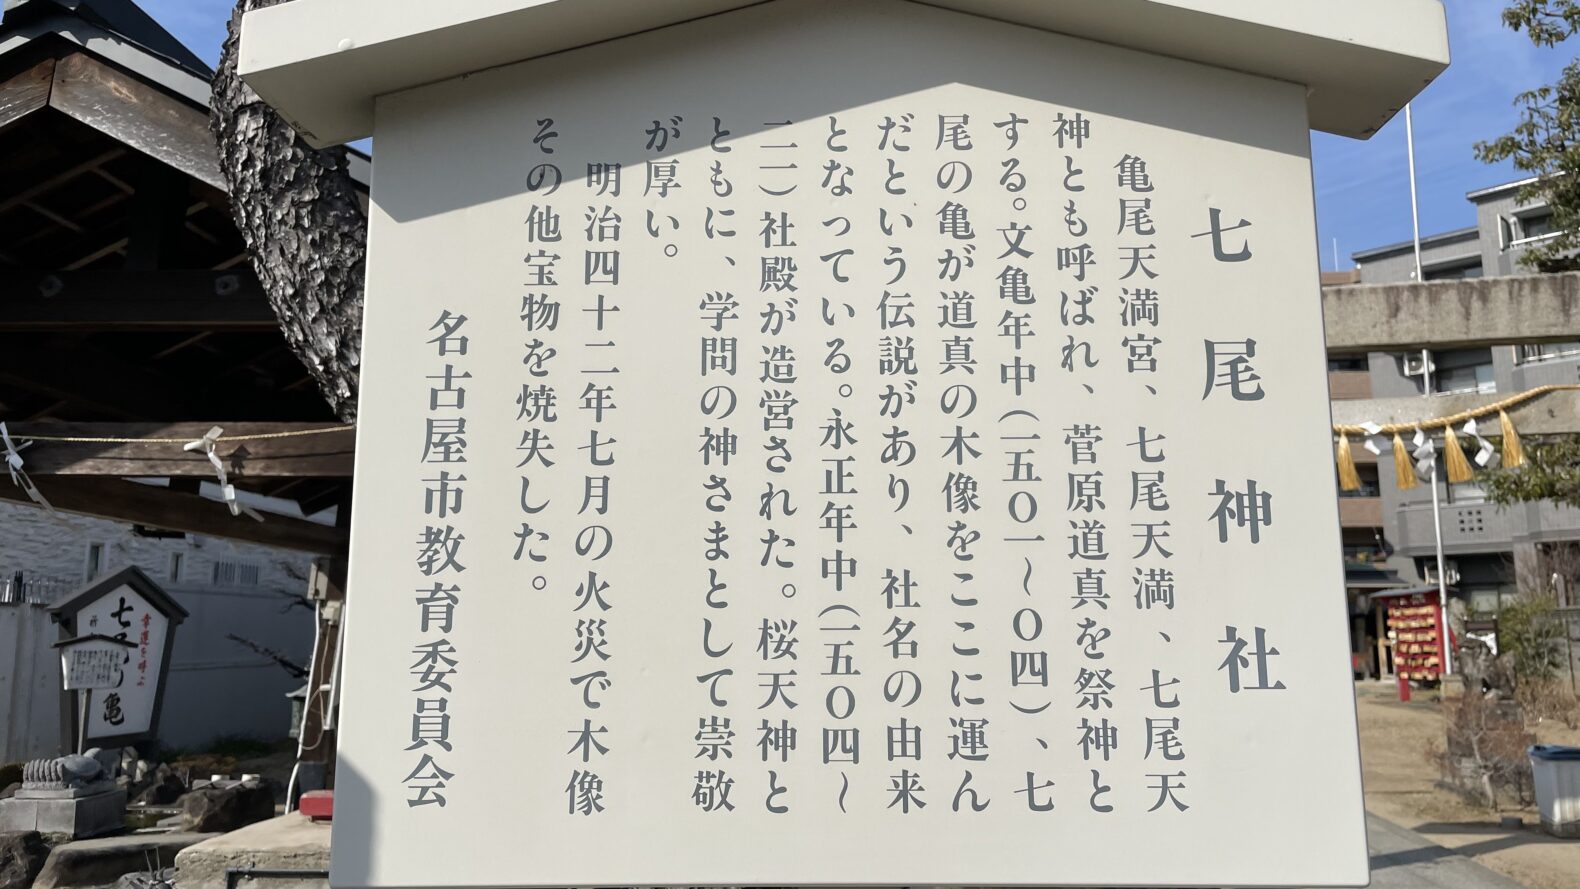 七尾神社
亀尾天満宮、七尾天満、七尾天
神とも呼ばれ、菅原道真を祭神と
する。文亀年中(一五〇一〜〇四)、七
尾の亀が道真の木像をここに運ん
だという伝説があり、社名の由来
となっている。永正年中(一五〇四〜
二一)社殿が造営された。桜天神と
ともに、学問の神さまとして崇敬
が厚い。
明治四十二年七月の火災で木像
その他宝物を焼失した。
名古屋市教育委員会
幸運を呼ぶ
亀